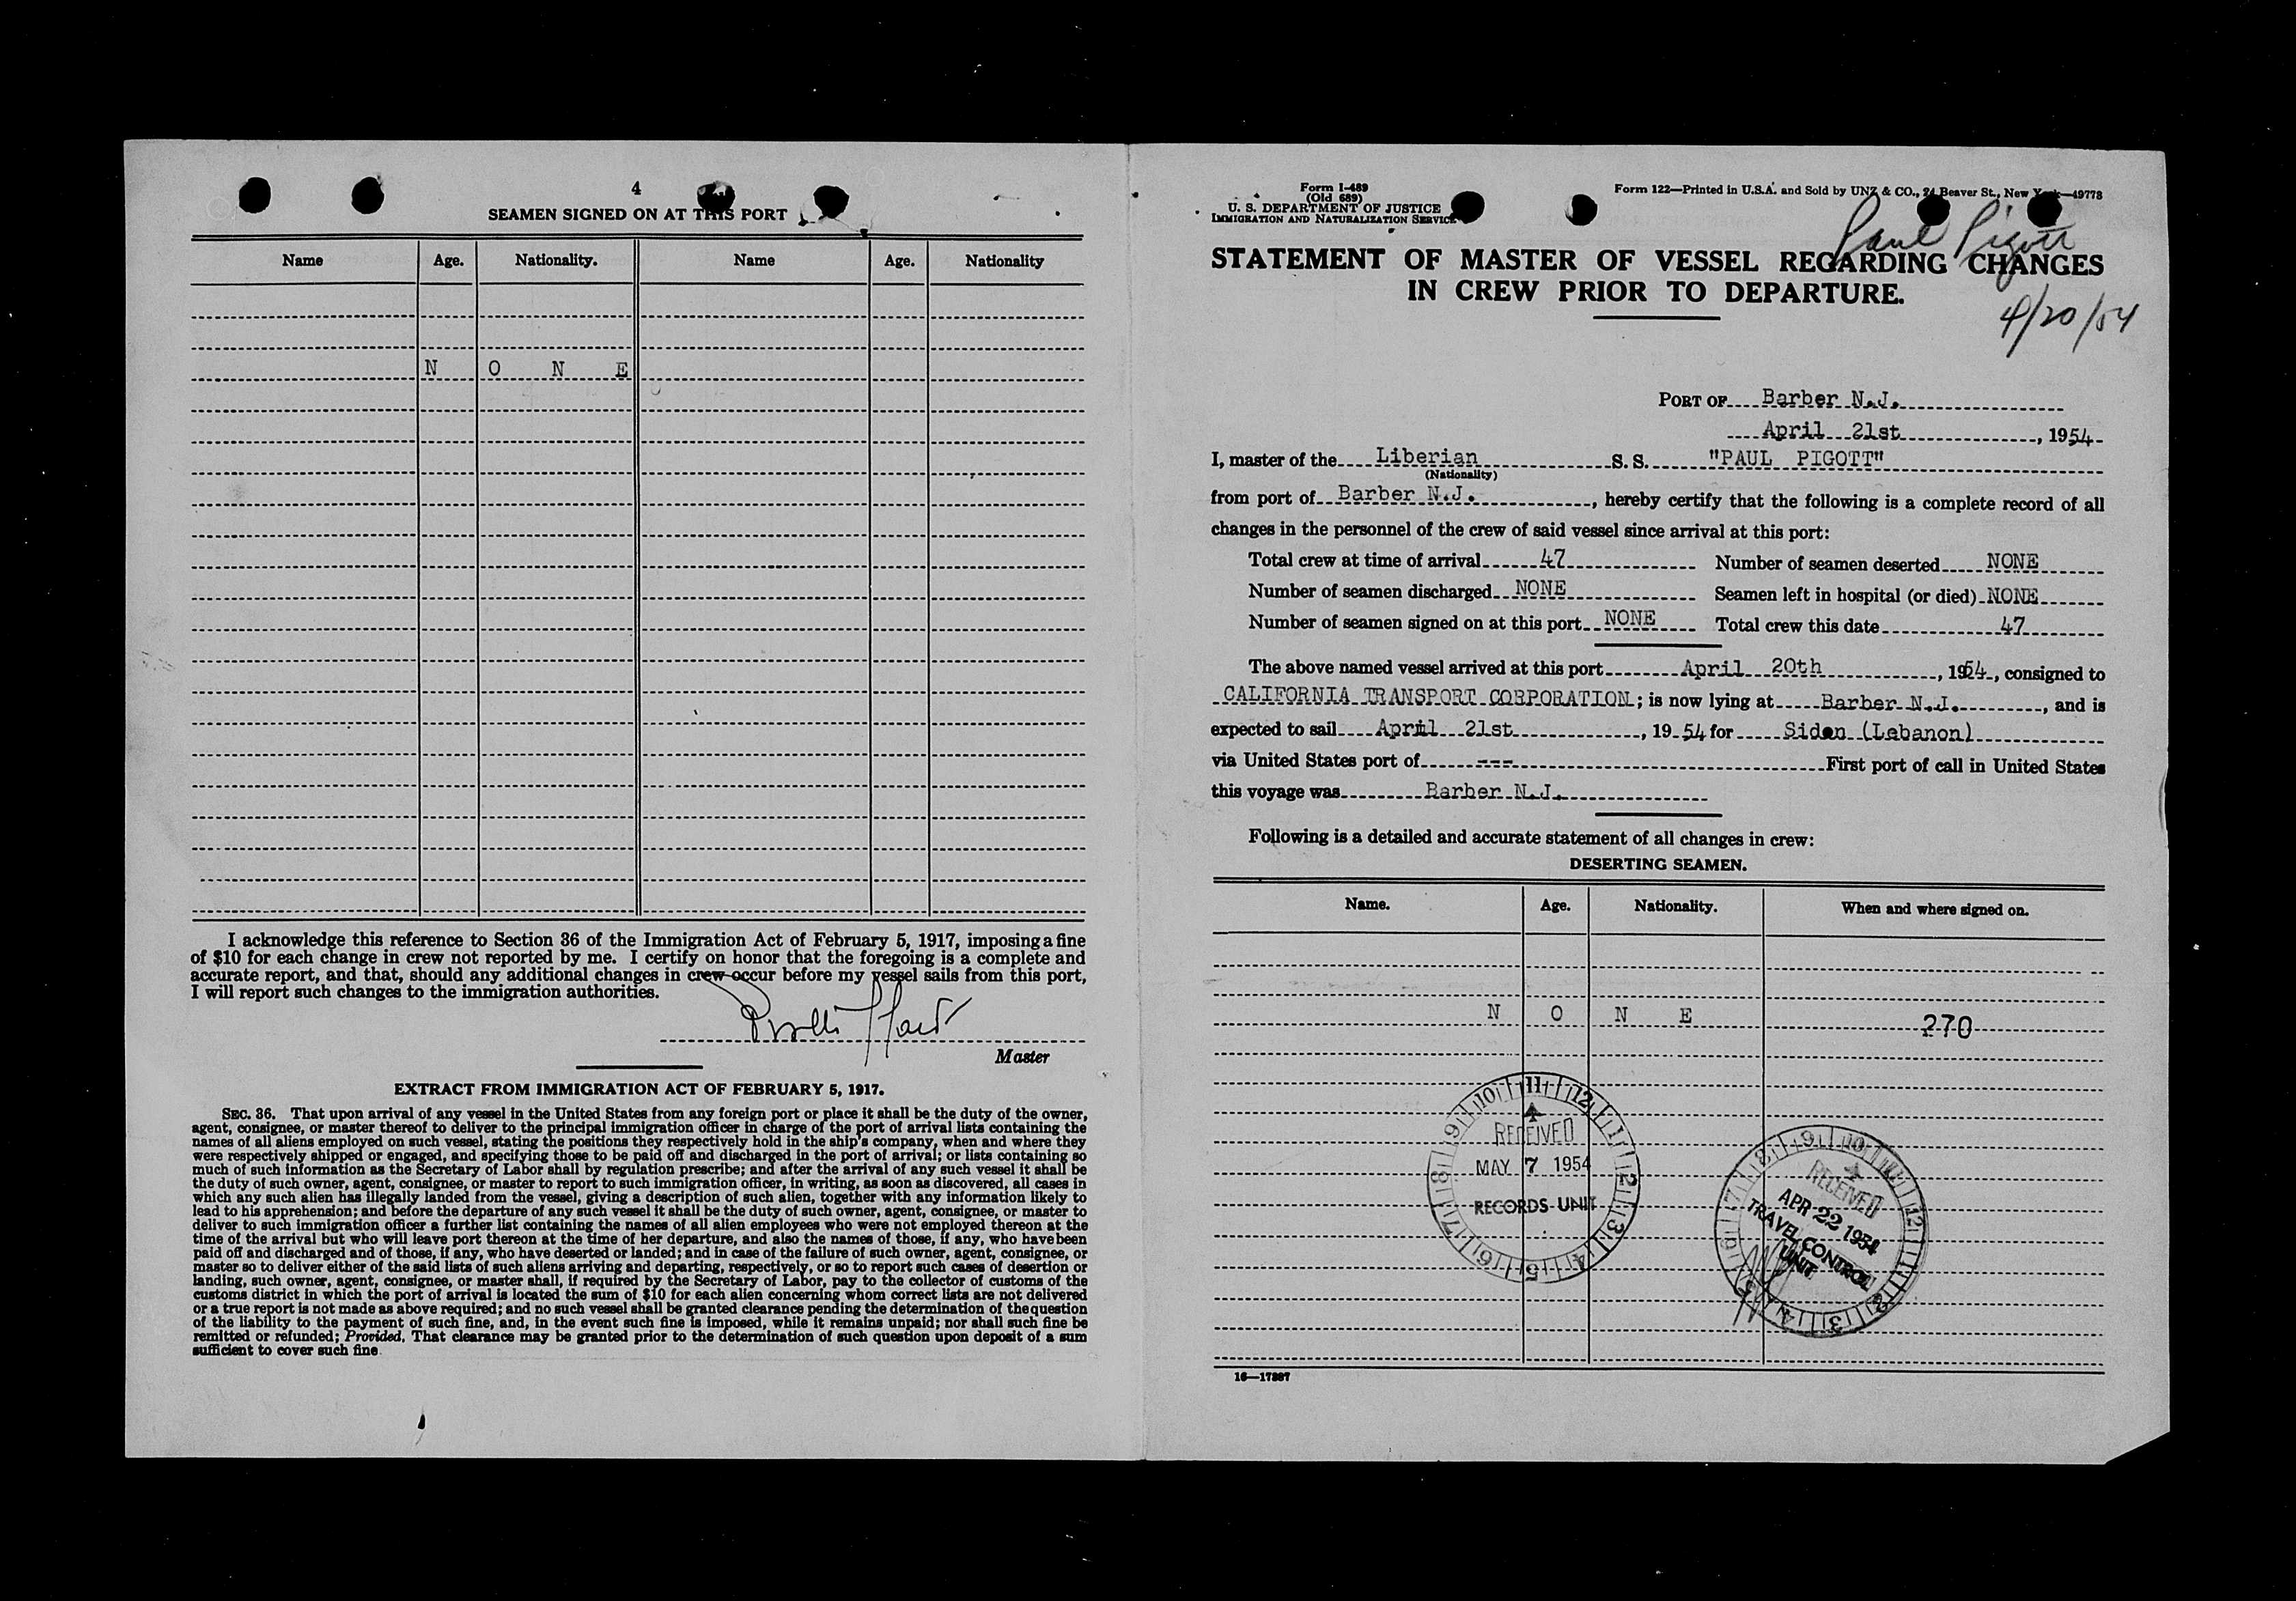 4
SEAMEN SIGNED ON AT THIS PORT
Name Age. Nationality. Name Age. Nationality
N O N E
I acknowledge this reference to Section 36 of the Immigration Act of February 5, 1917, imposing a fine
of $10 for each change in crew not reported by me. I certify on honor that the foregoing is a complete and
accurate report, and that, should any additional changes in crew occur before my vessel sails from this port,
I will report such changes to the immigration authorities.
Master
EXTRACT FROM IMMIGRATION ACT OF FEBRUARY 5, 1917.
SEC. 36. That upon arrival of any vessel in the United States from any foreign port or place it shall be the duty of the owner,
agent, consignee, or master thereof to deliver to the principal immigration officer in charge of the port of arrival lists containing the
names of all aliens employed on such vessel, stating the positions they respectively hold in the ship's company, when and where they
were respectively shipped or engaged, and specifying those to be paid off and discharged in the port of arrival; or lists containing so
much of such information as the Secretary of Labor shall by regulation prescribe; and after the arrival of any such vessel it shall be
the duty of such owner, agent, consignee, or master to report to such immigration officer, in writing, as soon as discovered, all cases in
which any such alien has illegally landed from the vessel, giving a description of such alien, together with any information likely to
lead to his apprehension; and before the departure of any such vessel it shall be the duty of such owner, agent, consignee, or master to
deliver to such immigration officer a further list containing the names of all alien employees who were not employed thereon at the
time of the arrival but who will leave port thereon at the time of her departure, and also the names of those, if any, who have been
paid off and discharged and of those, if any, who have deserted or landed; and in case of the failure of such owner, agent, consignee, or
master so to deliver either of the said lists of such aliens arriving and departing, respectively, or so to report such cases of desertion or
landing, such owner, agent, consignee, or master shall, if required by the Secretary of Labor, pay to the collector of customs of the
customs district in which the port of arrival is located the sum of $10 for each alien concerning whom correct lists are not delivered
or a true report is not made as above required; and no such vessel shall be granted clearance pending the determination of the question
of the liability to the payment of such fine, and, in the event such fine is imposed, while it remains unpaid; nor shall such fine be
remitted or refunded; Provided, That clearance may be granted prior to the determination of such question upon deposit of a sum
sufficient to cover such fine
Form I-489
(Old 689)
U. S. DEPARTMENT OF JUSTICE
IMMIGRATION AND NATURALIZATION SERVICE
Form 122—Printed in U.S.A. and Sold by UNZ & CO., 24 Beaver St., New York—49778
Paul Pigott
STATEMENT OF MASTER OF VESSEL REGARDING CHANGES
IN CREW PRIOR TO DEPARTURE.
4/20/54
PORT OF Barber N.J.
April 21st, 1954
I, master of the Liberian S. S. "PAUL PIGOTT"
(Nationality)
from port of Barber N.J., hereby certify that the following is a complete record of all
changes in the personnel of the crew of said vessel since arrival at this port:
Total crew at time of arrival 47 Number of seamen deserted NONE
Number of seamen discharged NONE Seamen left in hospital (or died) NONE
Number of seamen signed on at this port NONE Total crew this date 47
The above named vessel arrived at this port April 20th, 1954, consigned to
CALIFORNIA TRANSPORT CORPORATION; is now lying at Barber N.J., and is
expected to sail April 21st, 1954 for Sidon (Lebanon)
via United States port of --- First port of call in United States
this voyage was Barber N.J.
Following is a detailed and accurate statement of all changes in crew:
DESERTING SEAMEN.
Name. Age. Nationality. When and where signed on.
N O N E 270
10 11 12 1 2 3 4 5 6 7 8 9
RECEIVED
MAY 7 1954
RECORDS UNIT
RECEIVED
APR 22 1954
TRAVEL CONTROL
UNIT
16—17397